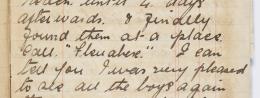 until 4 days
afterwards. I finally
found them at a place
call. "Steenbere." I can
tell you I was very pleased
to see all the boys again